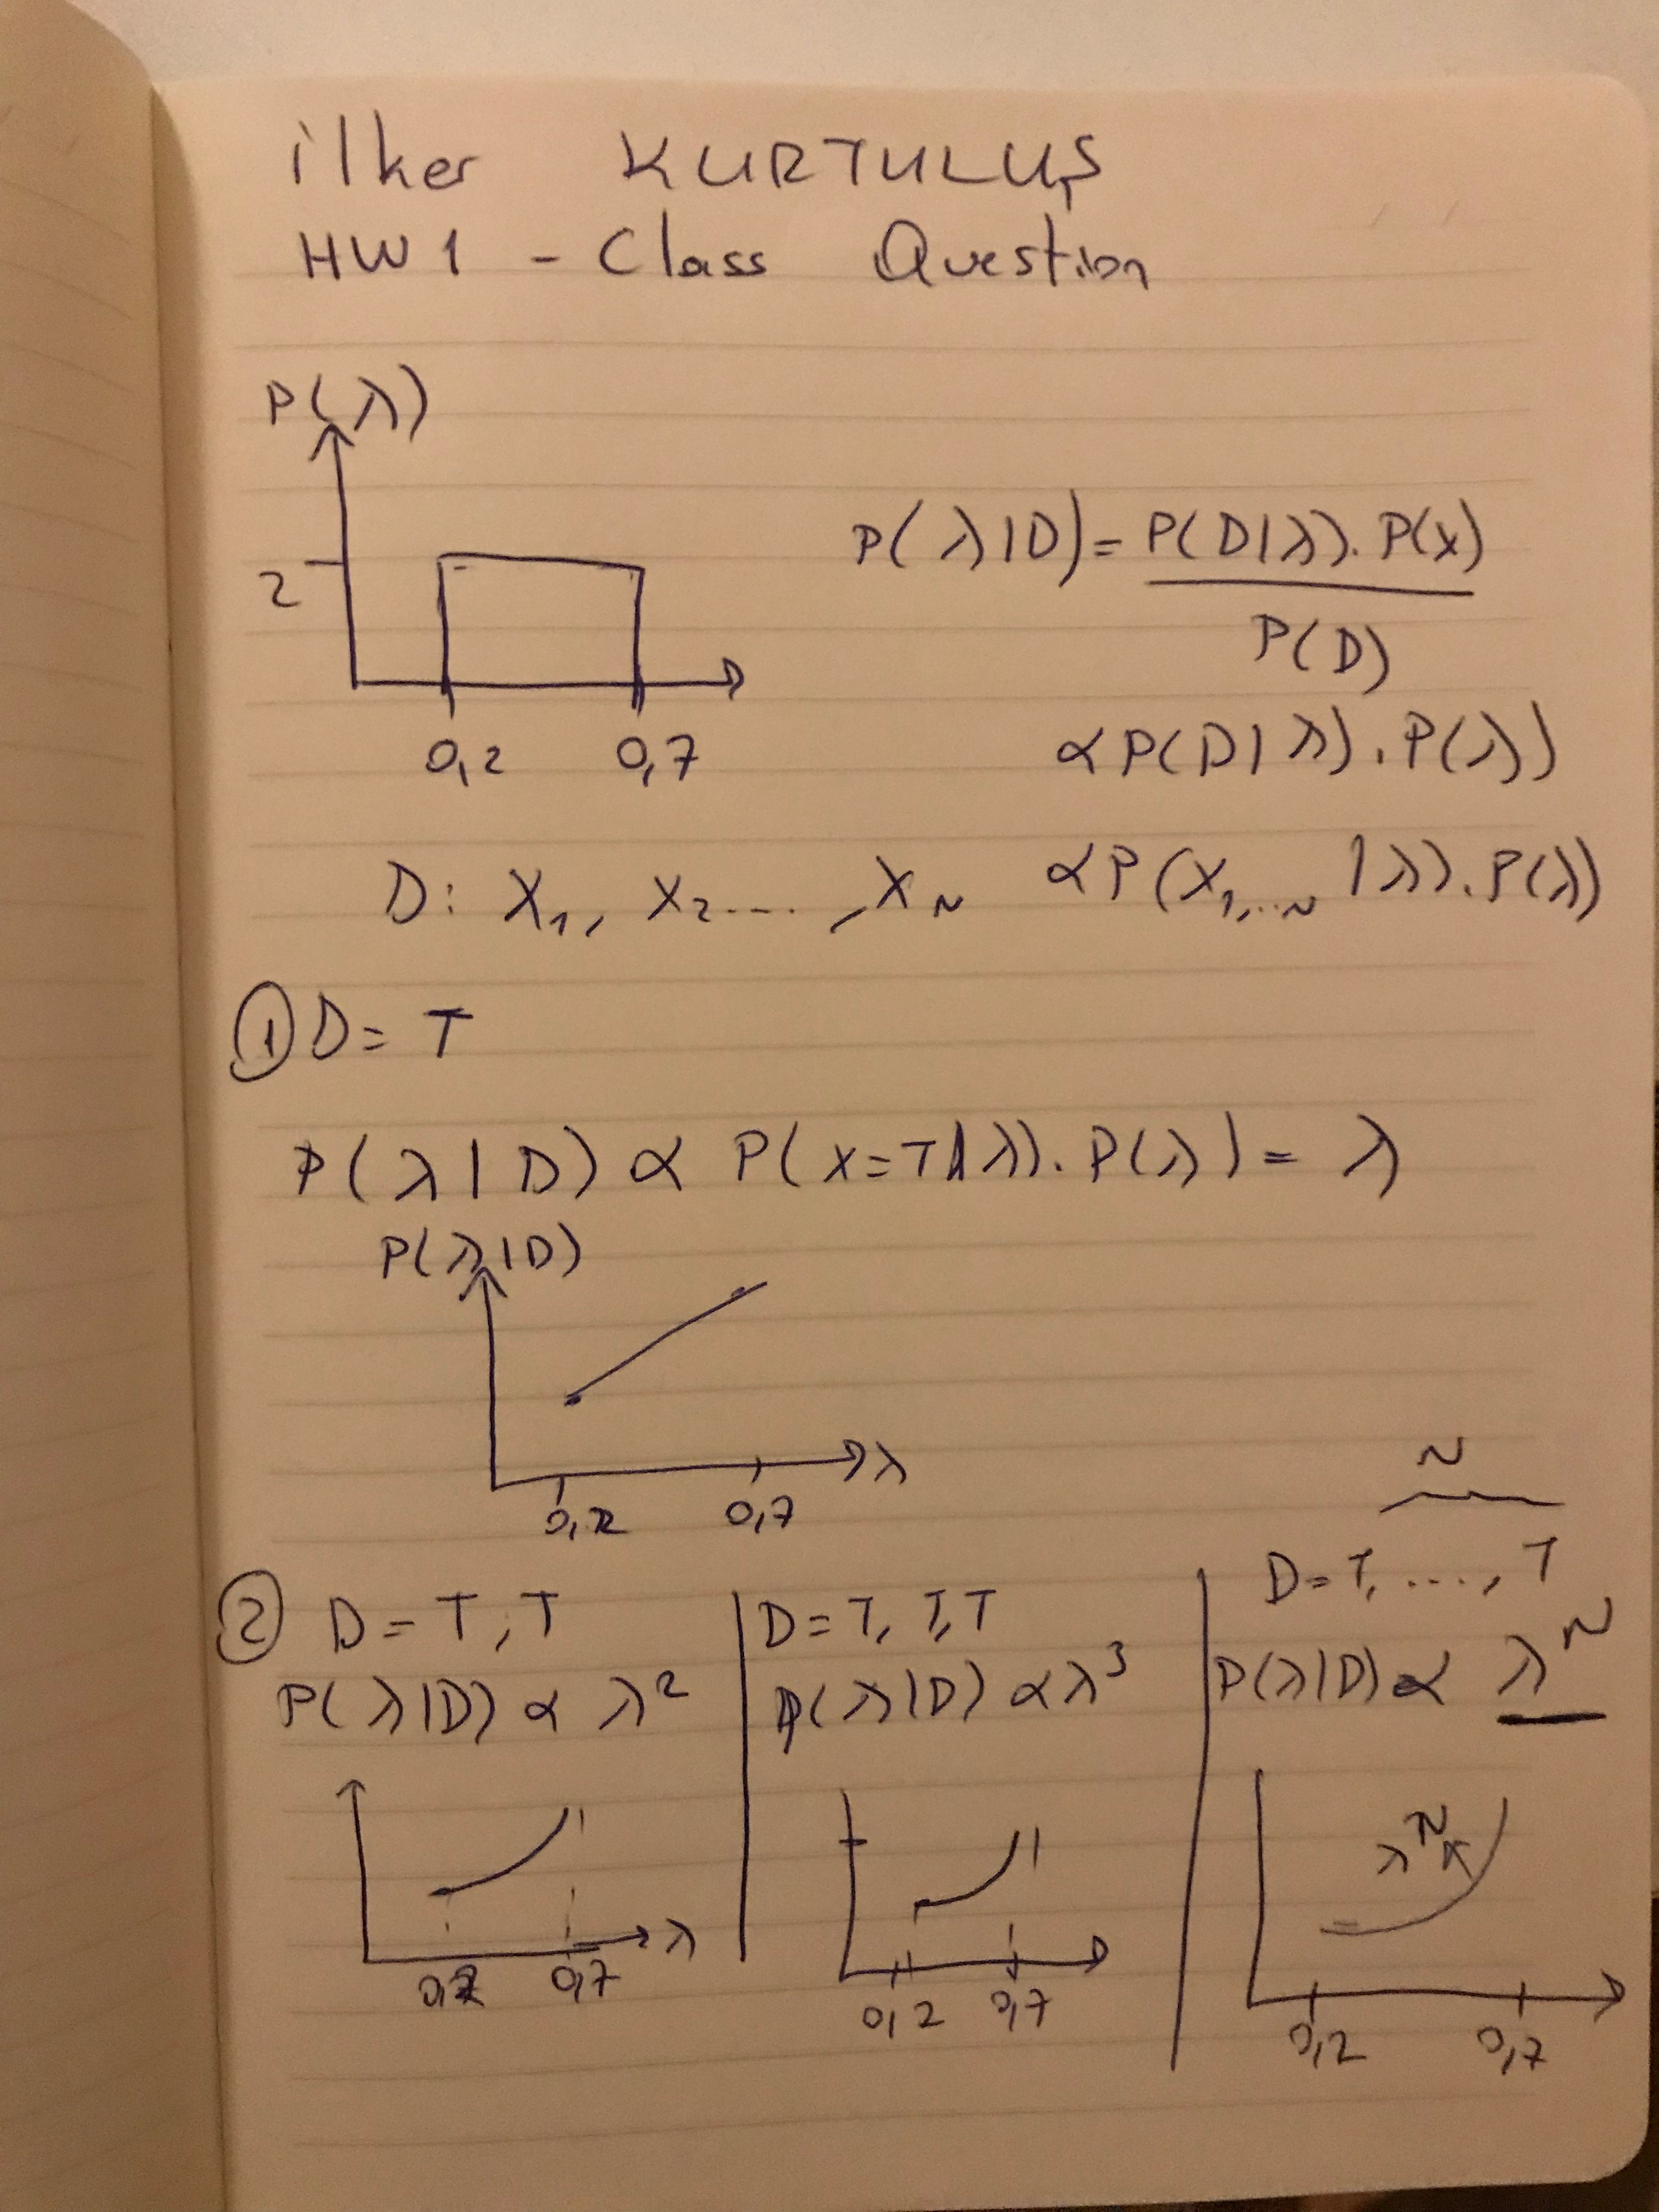 ilker KURTULUŞ
HW1 - Class Question
P(λ)
2
0,2 0,7
P(λ|D) = P(D|λ). P(x)
P(D)
∝ P(D|λ). P(λ)
D: x₁, x₂...., x_N ∝ P(x₁,..._N |λ). P(λ)
① D = T
P(λ|D) ∝ P(x=T|λ). P(λ) = λ
P(λ|D)
λ
0,2 0,7
② D = T, T
P(λ|D) ∝ λ²
λ
0,2 0,7
D = T, T, T
P(λ|D) ∝ λ³
0,2 0,7
N
D = T, ...., T
P(λ|D) ∝ λ^N
λ^N
0,2 0,7